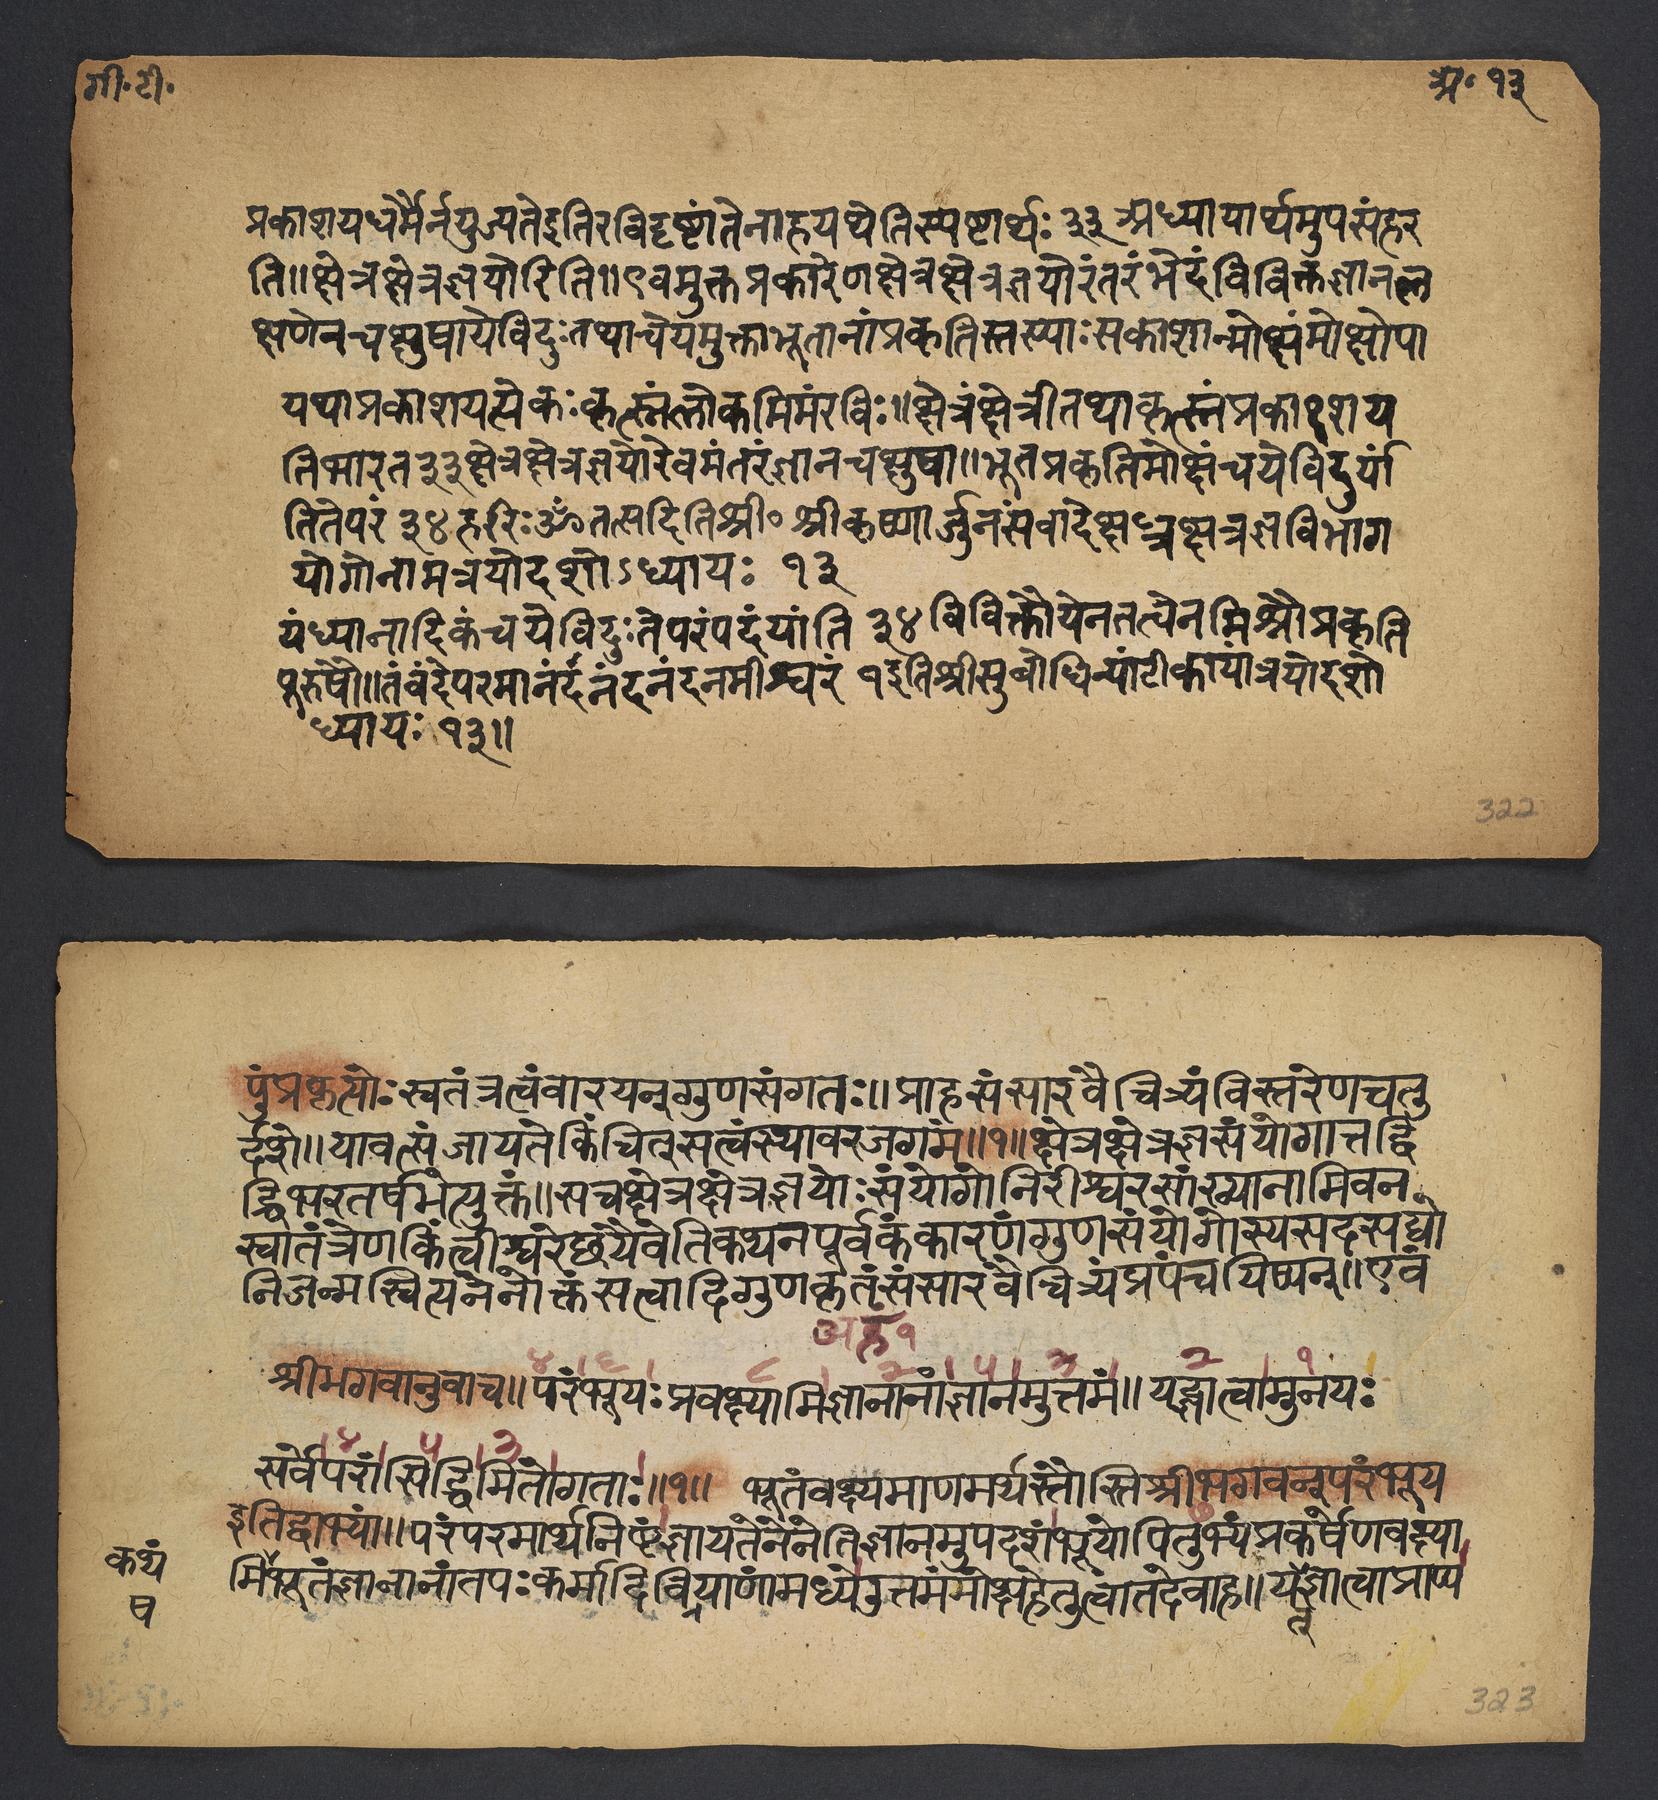 गी॰ टी॰
अ॰ १३
प्रकाशयधर्मैर्नयुज्यतेइतिरविदृष्टांतेनाहयथेतिस्पष्टार्थः ३३ अध्यायार्थमुपसंहर
ति॥क्षेत्रक्षेत्रज्ञयोरिति॥एवमुक्तप्रकारेणक्षेत्रक्षेत्रज्ञयोरंतरंभेदंविविक्तज्ञानल
क्षणेनचक्षुषायेविदुःतथाचेयमुक्ताभूतानांप्रकृतिस्तस्याःसकाशान्मोक्षंमोक्षोपा
यथाप्रकाशयत्येकःकृत्स्नंलोकमिमंरविः॥क्षेत्रंक्षेत्रीतथाकृत्स्नंप्रकाशय
तिभारत३३क्षेत्रक्षेत्रज्ञयोरेवमंतरंज्ञानचक्षुषा॥भूतप्रकृतिमोक्षंचयेविदुर्यां
तितेपरं ३४ हरिःॐतत्सदितिश्री॰ श्रीकृष्णार्जुनसंवादेक्षेत्रक्षेत्रज्ञविभाग
योगोनामत्रयोदशोऽध्यायः १३
यंध्यानादिकंचयेविदुःतेपरंपदंयांति ३४ विविक्तौयेनतत्वेनमिश्रौप्रकृति
पुरुषौ॥तंवंदेपरमानंदंनंदनंदनमीश्वरं १इतिश्रीसुबोधिन्यांटीकायांत्रयोदशो
ध्यायः १३॥
322
पुंप्रकृत्योःस्वतंत्रत्वंवारयन्गुणसंगतः॥प्राहसंसारवैचित्र्यंविस्तरेणचतु
र्दशे॥यावत्संजायतेकिंचित्सत्वंस्थावरजगमं॥१॥क्षेत्रक्षेत्रज्ञसंयोगात्तद्वि
द्धिभरतर्षभेत्युक्तं॥सचक्षेत्रक्षेत्रज्ञयोःसंयोगोनिरीश्वरसांख्यानामिवन
स्वातंत्रेणकिंत्वीश्वरेछयैवेतिकथनपूर्वकंकारणंगुणसंयोगोस्यसदसद्यो
निजन्मस्वित्यनेनोक्तंसत्वादिगुणकृतंसंसारवैचित्र्यंप्रपंचयिष्यन्॥एवं
अह१
श्रीभगवानुवाच॥परंभूयःप्रवक्ष्यामिज्ञानानांज्ञानमुत्तमं॥यद्ज्ञात्वामुनयः
सर्वेपरांसिद्धिमितोगताः॥१॥ भूतंवक्ष्यमाणमर्थंस्तौस्तिश्रीभगवन्परंभूय
इतिद्वाभ्यां॥परंपरमार्थनिष्टंज्ञायतेनेनेतिज्ञानमुपदेशंभूयोपितुभ्यंप्रकर्षेणवक्ष्या
मिभूतंज्ञानानांतपःकर्मादिविषयाणांमध्येउत्तमंमोक्षहेतुत्वात्तदेवाह॥यज्ज्ञात्वाप्राप्य
कथं
ष
323